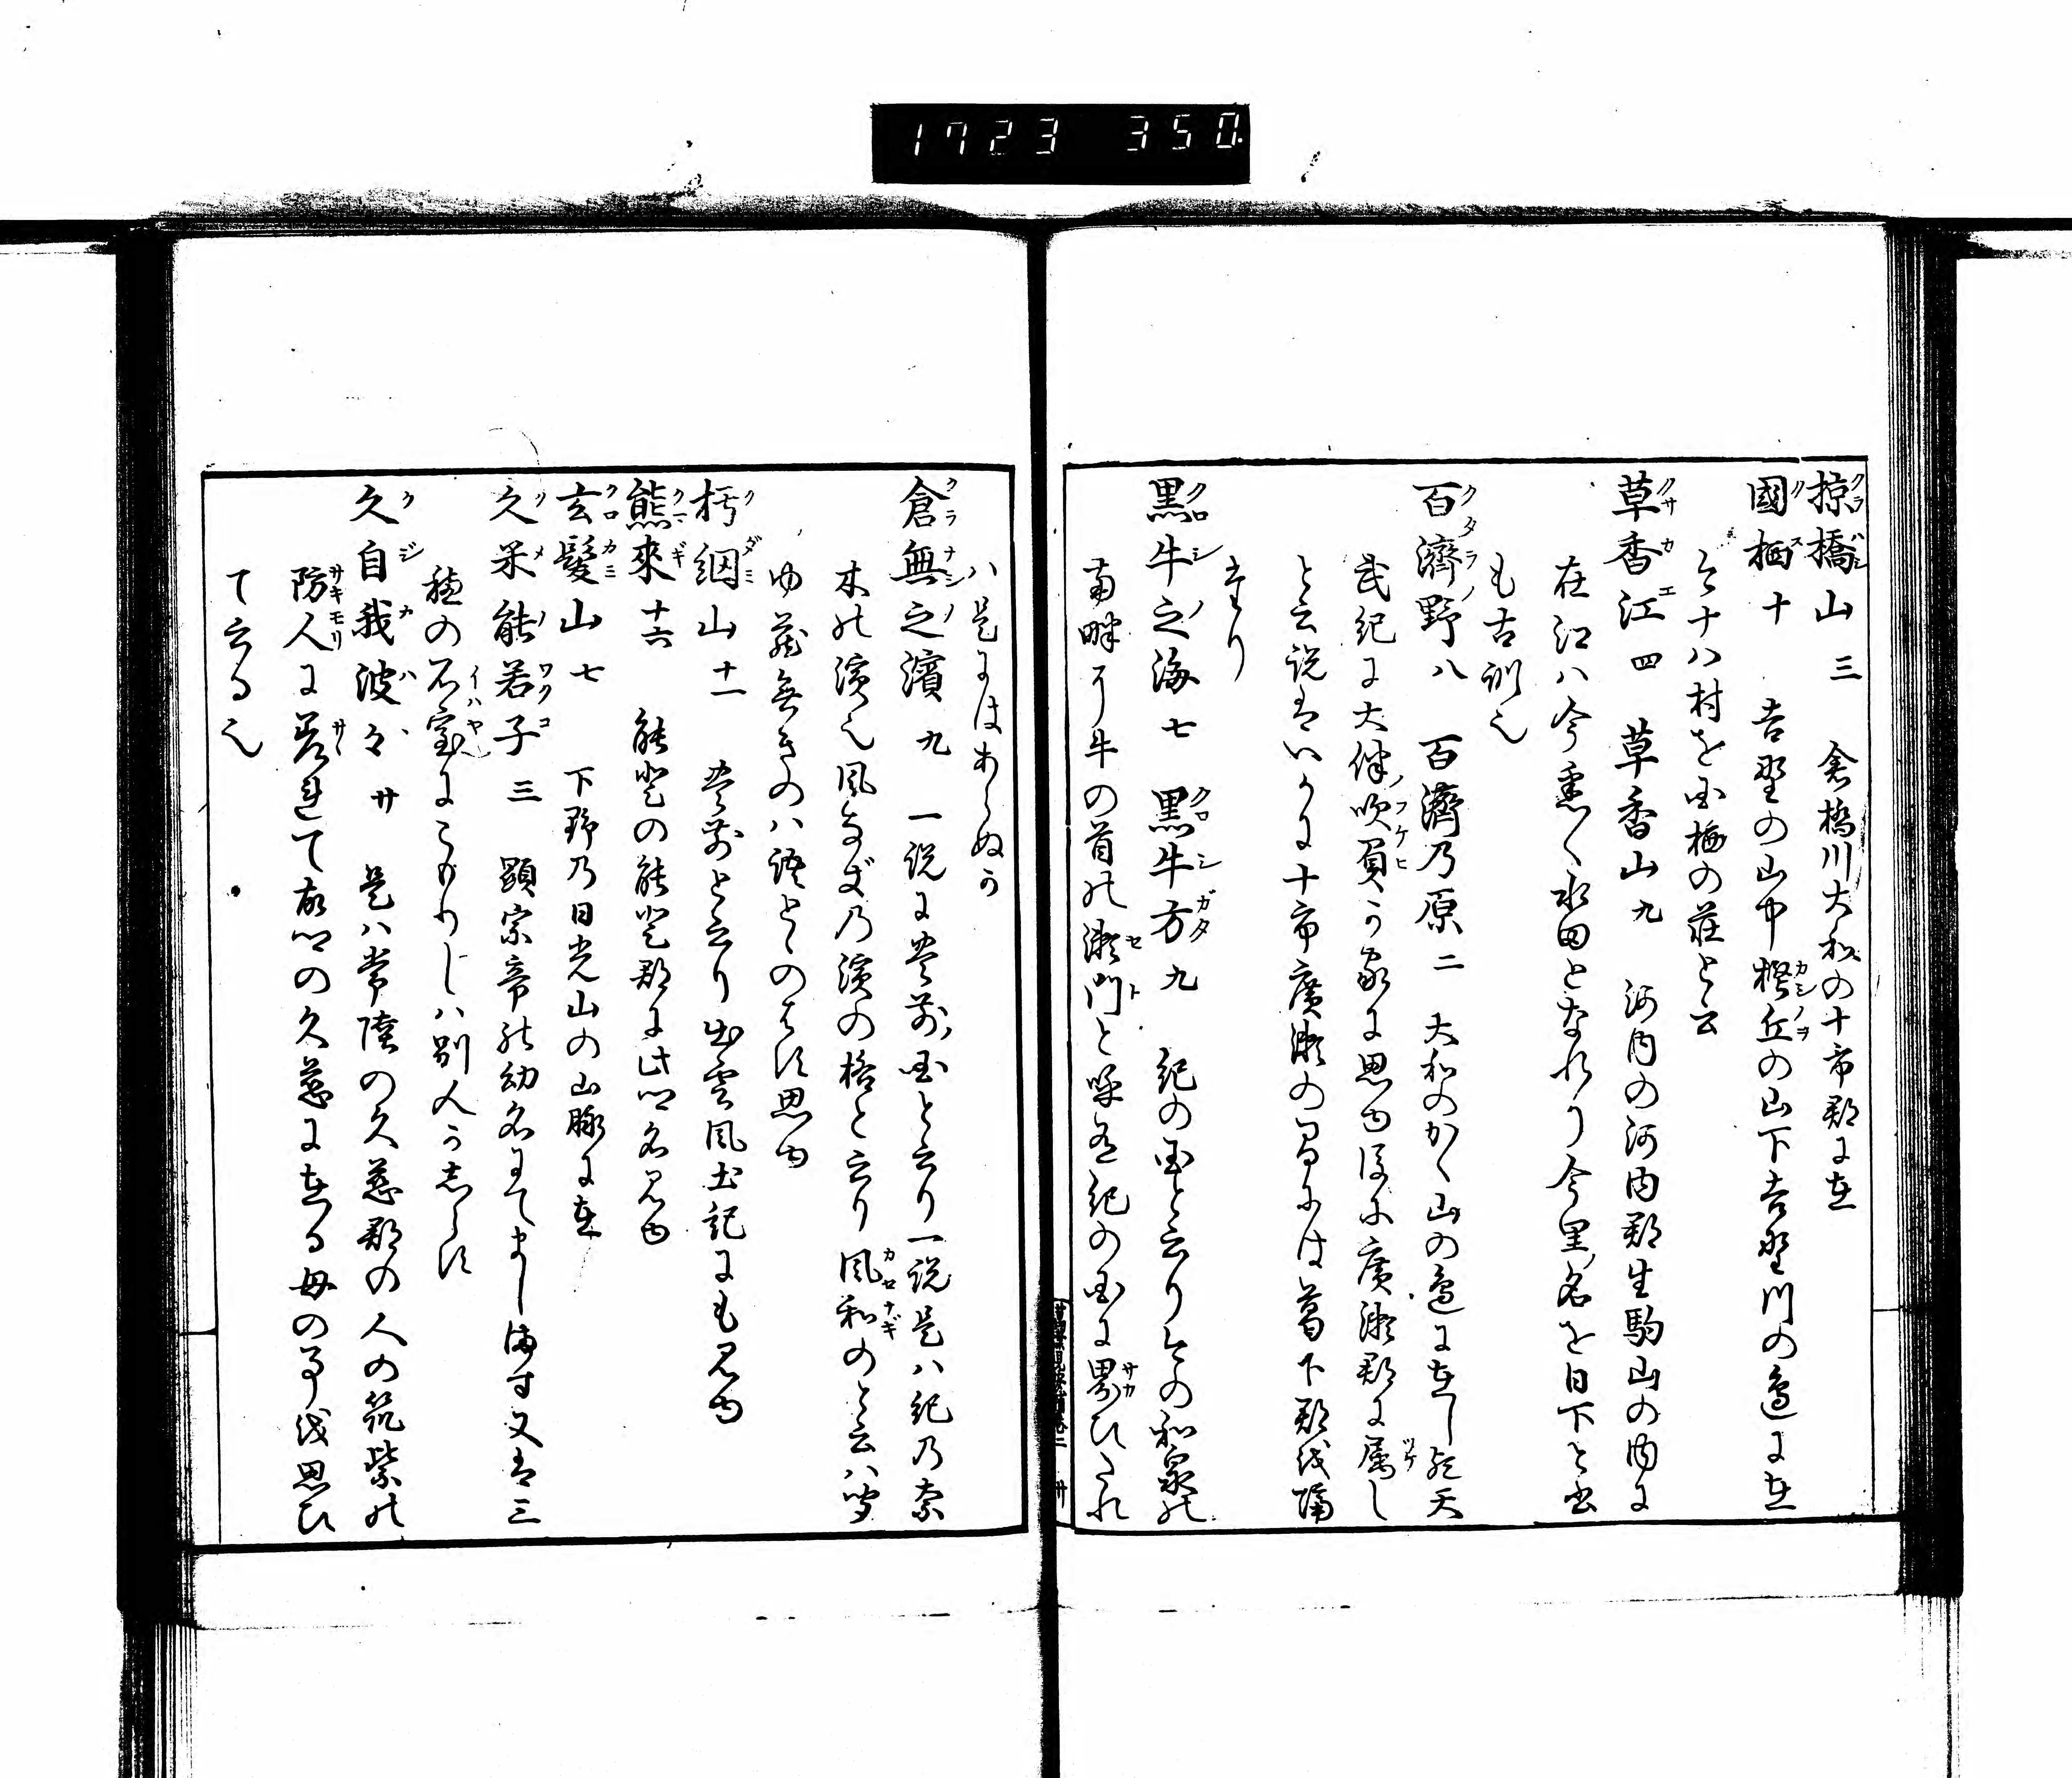 1723 350
掠橋山 三 倉橋川大和の十市郡に在
國栖 十 吉野の山中樫丘の山下吉野川の邊に在
今ナハ村を国栖の荘と云
草香江 四 草香山 九 河内の河内郡生駒山の内に
在江ハ今悉く水田となれり今里名を日下と書
も古訓也
百濟野 八 百濟乃原 二 大和のかく山の邊に在し天
武紀に大伴吹負か家に思ゆ後に廣瀬郡に属し
と云説はいかに十市廣瀬の間には葛下郡を隔
たり
黒牛之海 七 黒牛方 九 紀の国と云り今の和泉の
南畔に牛の首の瀬門と呼て紀の国に界ひたれ
ハ是にはあらぬか
倉無之濱 九 一説に豊前国と云り一説是ハ紀乃奈
木の濱也風なぎ乃濱の格と云り風和のと云ハ聞
ゆ蔵無きのハ語とゝのはす思ゆ
朽網山 十一 豊前と云り出雲風土記にも見ゆ
熊來 十六 能登の能登郡に此名見ゆ
玄髪山 七 下野乃日光山の山脈に在
久米能若子 三 顕宗帝の幼名にてまします又は三
穂の石室にこもりしハ別人か志らす
久自我波々 廿 是ハ常陸の久慈郡の人の筑紫の
防人に差れて故郷の久慈に在る母の事を思ひ
て云る也